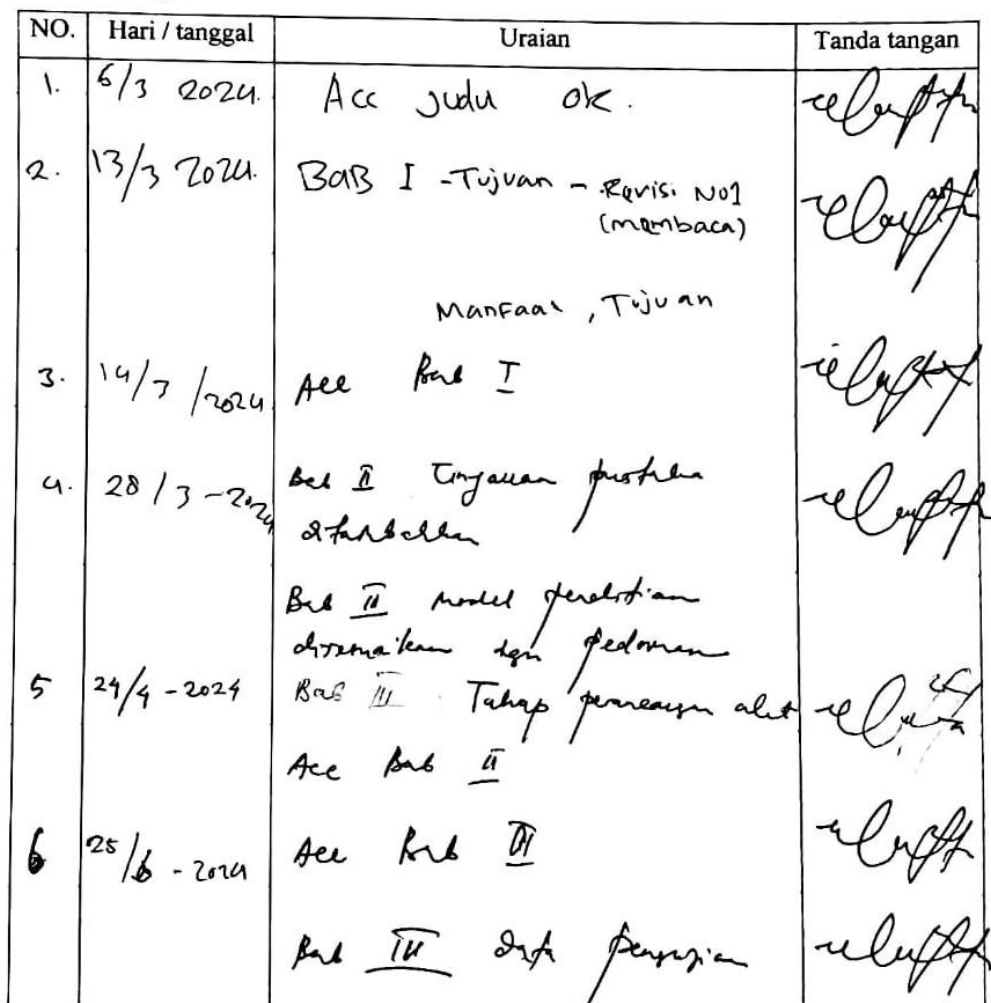 NO. Hari / tanggal Uraian Tanda tangan
1. 6/3 2024. Acc Judul ok.
2. 13/3 2024. BAB I - Tujuan - Revisi No1
(membaca)
Manfaat, Tujuan
3. 14/3/2024 Acc Bab I
4. 28/3-2024 Bab II Tinjauan pustaka
ditambahkan
Bab II model penelitian
disesuaikan dgn pedoman
5 24/4-2024 Bab III Tahap alat
Acc Bab II
6 25/6-2024 Acc Bab III
Bab data pengujian